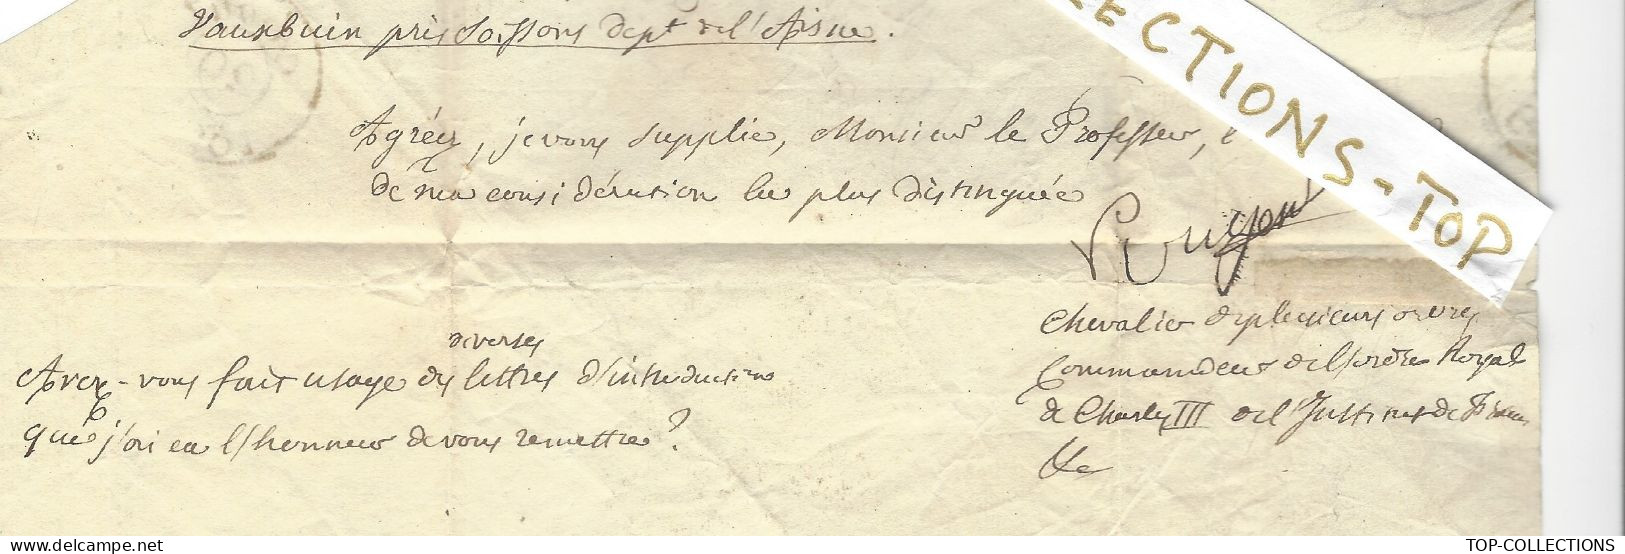 Vauxbuin près Soissons dept de l'Aisne.
ECTIONS-TOP
Agréez, je vous supplie, Monsieur le Professeur,
de ma considération la plus distinguée
Chevalier de plusieurs ordres
Commandeur de l'ordre Royal
de Charles III de l'Institut de
&c
diverses
Avez-vous fait usage des lettres d'introduction
que j'ai eu l'honneur de vous remettre?
TOP-COLLECTIONS